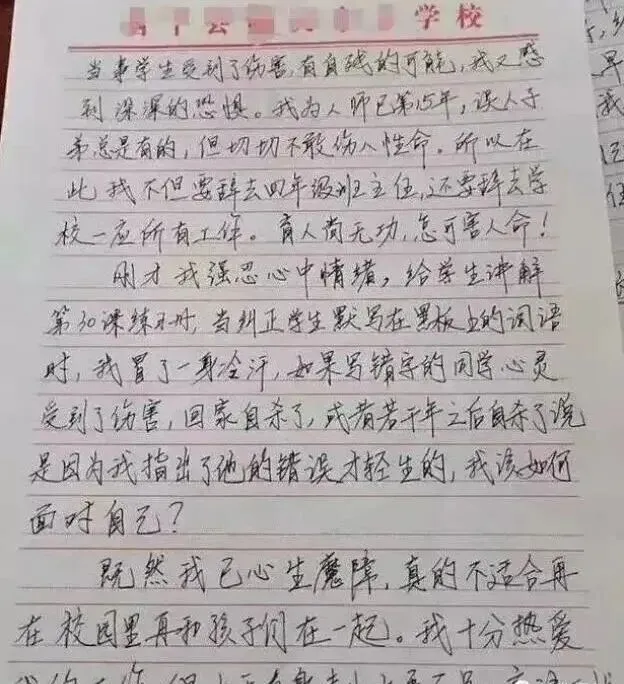 学校
当事学生受到了伤害,有自残的可能,我又感
到深深的恐惧。我为人师已第15年,误人子
弟总是有的,但切切不敢伤人性命。所以在
此我不但要辞去四年级班主任,还要辞去学
校一应所有工作。育人尚无功,怎可害人命!
刚才我强忍心中情绪,给学生讲解
第30课练习册,当纠正学生默写在黑板上的词语
时,我冒了一身冷汗,如果写错字的同学心灵
受到了伤害,回家自杀了,或者若干年之后自杀了说
是因为我指出了他的错误才轻生的,我该如何
面对自己?
既然我已心生魔障,真的不适合再
在校园里再和孩子们在一起。我十分热爱